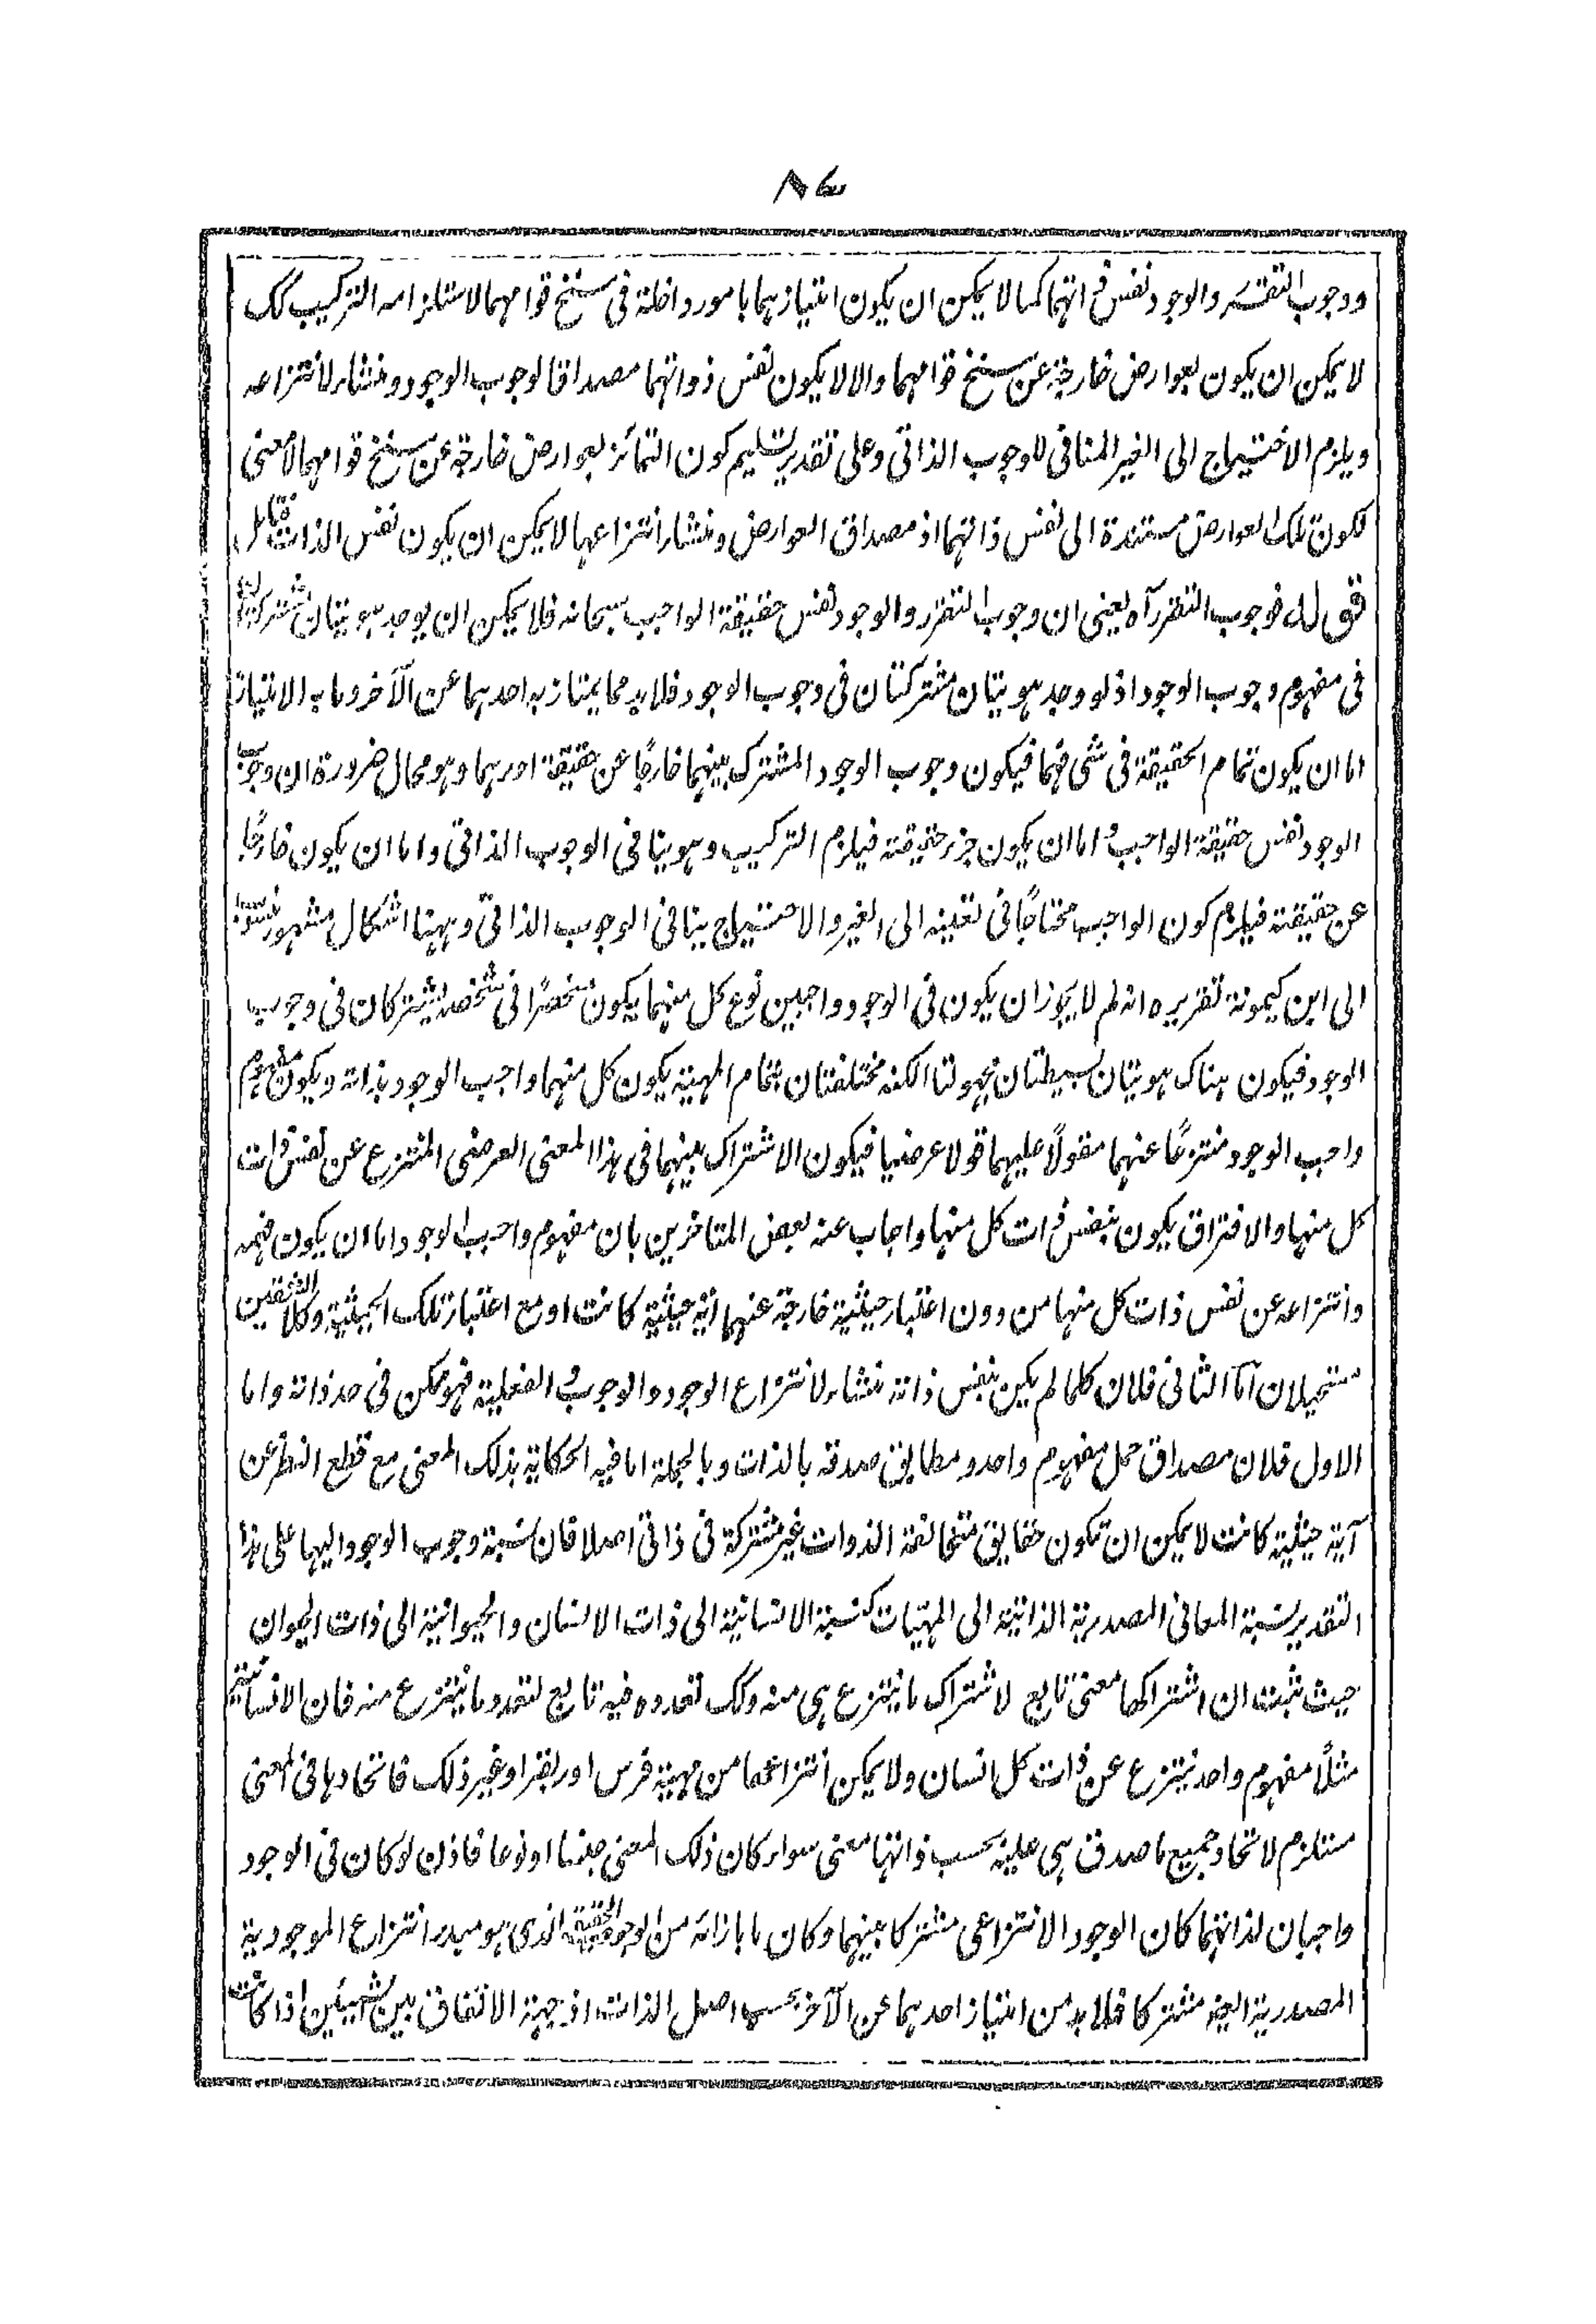 ٨٤
ووجوب التقرر والوجود نفس ذاتهما كما لا يمكن ان يكون امتيازهما بامور داخلة فى سنخ قوامهما لاستلزامه التركيب كك
لا يمكن ان يكون بعوارض خارجة عن سنخ قوامهما والا لا يكون نفس ذواتهما مصداقا لوجوب الوجود ومنشاء لانتزاعه
ويلزم الاحتياج الى الغير المنافى للوجوب الذاتى وعلى تقدير تسليم كون التمائز بعوارض خارجة عن سنخ قوامهما لا معنى
لكون تلك العوارض مستندة الى نفس ذاتهما اذ مصداق العوارض ومنشاء انتزاعها لا يمكن ان يكون نفس الذات فتأمل
قوله فوجوب التقرر آه يعنى ان وجوب التقرر والوجود نفس حقيقة الواجب سبحانه فلا يمكن ان يوجد هويتان مشتركتان
فى مفهوم وجوب الوجود اذ لو وجد هويتان مشتركتان فى وجوب الوجود فلا بد مما يمتاز به احدهما عن الآخر وما به الامتياز
اما ان يكون تمام الحقيقة فى شئ منهما فيكون وجوب الوجود المشترك بينهما خارجًا عن حقيقة احدهما وهو محال ضرورة ان وجوب
الوجود نفس حقيقة الواجب واما ان يكون جزء حقيقته فيلزم التركيب وهو ينافى الوجوب الذاتى واما ان يكون خارجًا
عن حقيقته فيلزم كون الواجب محتاجًا فى تعينه الى الغير والاحتياج ينافى الوجوب الذاتى وههنا اشكال مشهور منسوب
الى ابن كيمونة تقريره انه لم لا يجوز ان يكون فى الوجود واجبين نوع كل منهما يكون منحصرًا فى شخصه يشتركان فى وجوب
الوجود فيكون هناك هويتان بسيطتان مجهولتا الكنه مختلفتان بتمام المهية يكون كل منهما واجب الوجود بذاته ويكون مفهوم
واجب الوجود منتزعًا عنهما مقولًا عليهما قولا عرضيا فيكون الاشتراك بينهما فى هذا المعنى العرضى المنتزع عن نفس ذات
كل منهما والافتراق يكون بنفس ذات كل منهما واجاب عنه بعض المتاخرين بان مفهوم واجب الوجود اما ان يكون فهمه
وانتزاعه عن نفس ذات كل منهما من دون اعتبار حيثية خارجة عنهما اية حيثية كانت او مع اعتبار تلك الحيثية وكلا الشقين
مستحيلان اما الثانى فلان كلما لم يكن بنفس ذاته منشاء لانتزاع الوجود والوجوب والفعلية فهو ممكن فى حد ذاته واما
الاول فلان مصداق حمل مفهوم واحد ومطابق صدقه بالذات وبالجملة ما فيه الحكاية بذلك المعنى مع قطع النظر عن
آية حيثية كانت لا يمكن ان تكون حقايق متخالفة الذوات غير مشتركة فى ذاتى اصلا فان نسبة وجوب الوجود اليهما على هذا
التقدير نسبة المعانى المصدرية الذاتية الى المهيات كنسبة الانسانية الى ذات الانسان والحيوانية الى ذات الحيوان
حيث ثبت ان اشتراكها معنى تابع لاشتراك ما ينتزع هى منه وكك تعدده فيه تابع لتعدد ما ينتزع منه فان الانسانية
مثلًا مفهوم واحد ينتزع عن ذات كل انسان ولا يمكن انتزاعها من مهية فرس او بقر او غير ذلك فاتحادها فى المعنى
مستلزم لاتحاد جميع ما صدق هى عليه بحسب ذاتها معنى سواء كان ذلك المعنى جنسا او نوعا فاذن لو كان فى الوجود
واجبان لذاتهما كان الوجود الانتزاعى مشتركا بينهما وكان ما بازائه من الوجود الحقيقى الذى هو مبدء انتزاع الموجودية
المصدرية ايضه مشتركا فلا بد من امتياز احدهما عن الآخر بحسب اصل الذات اذ جهة الاتفاق بين الشيئين اذا كانت